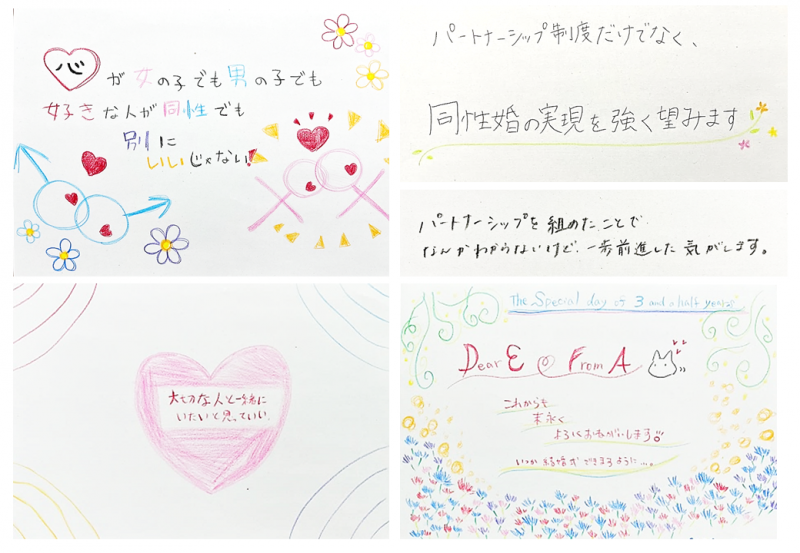 心が女の子でも男の子でも
好きな人が同性でも
別に
いいじゃない!
パートナーシップ制度だけでなく、
同性婚の実現を強く望みます
パートナーシップを組めたことで
なんかわからないけど、一歩前進した気がします。
大切な人と一緒に
いたいと思っていい。
The Special day of 3 and a half years
Dear E From A
これからも
末永く
よろしくおねがいします!!
いつか結婚ができますように...。